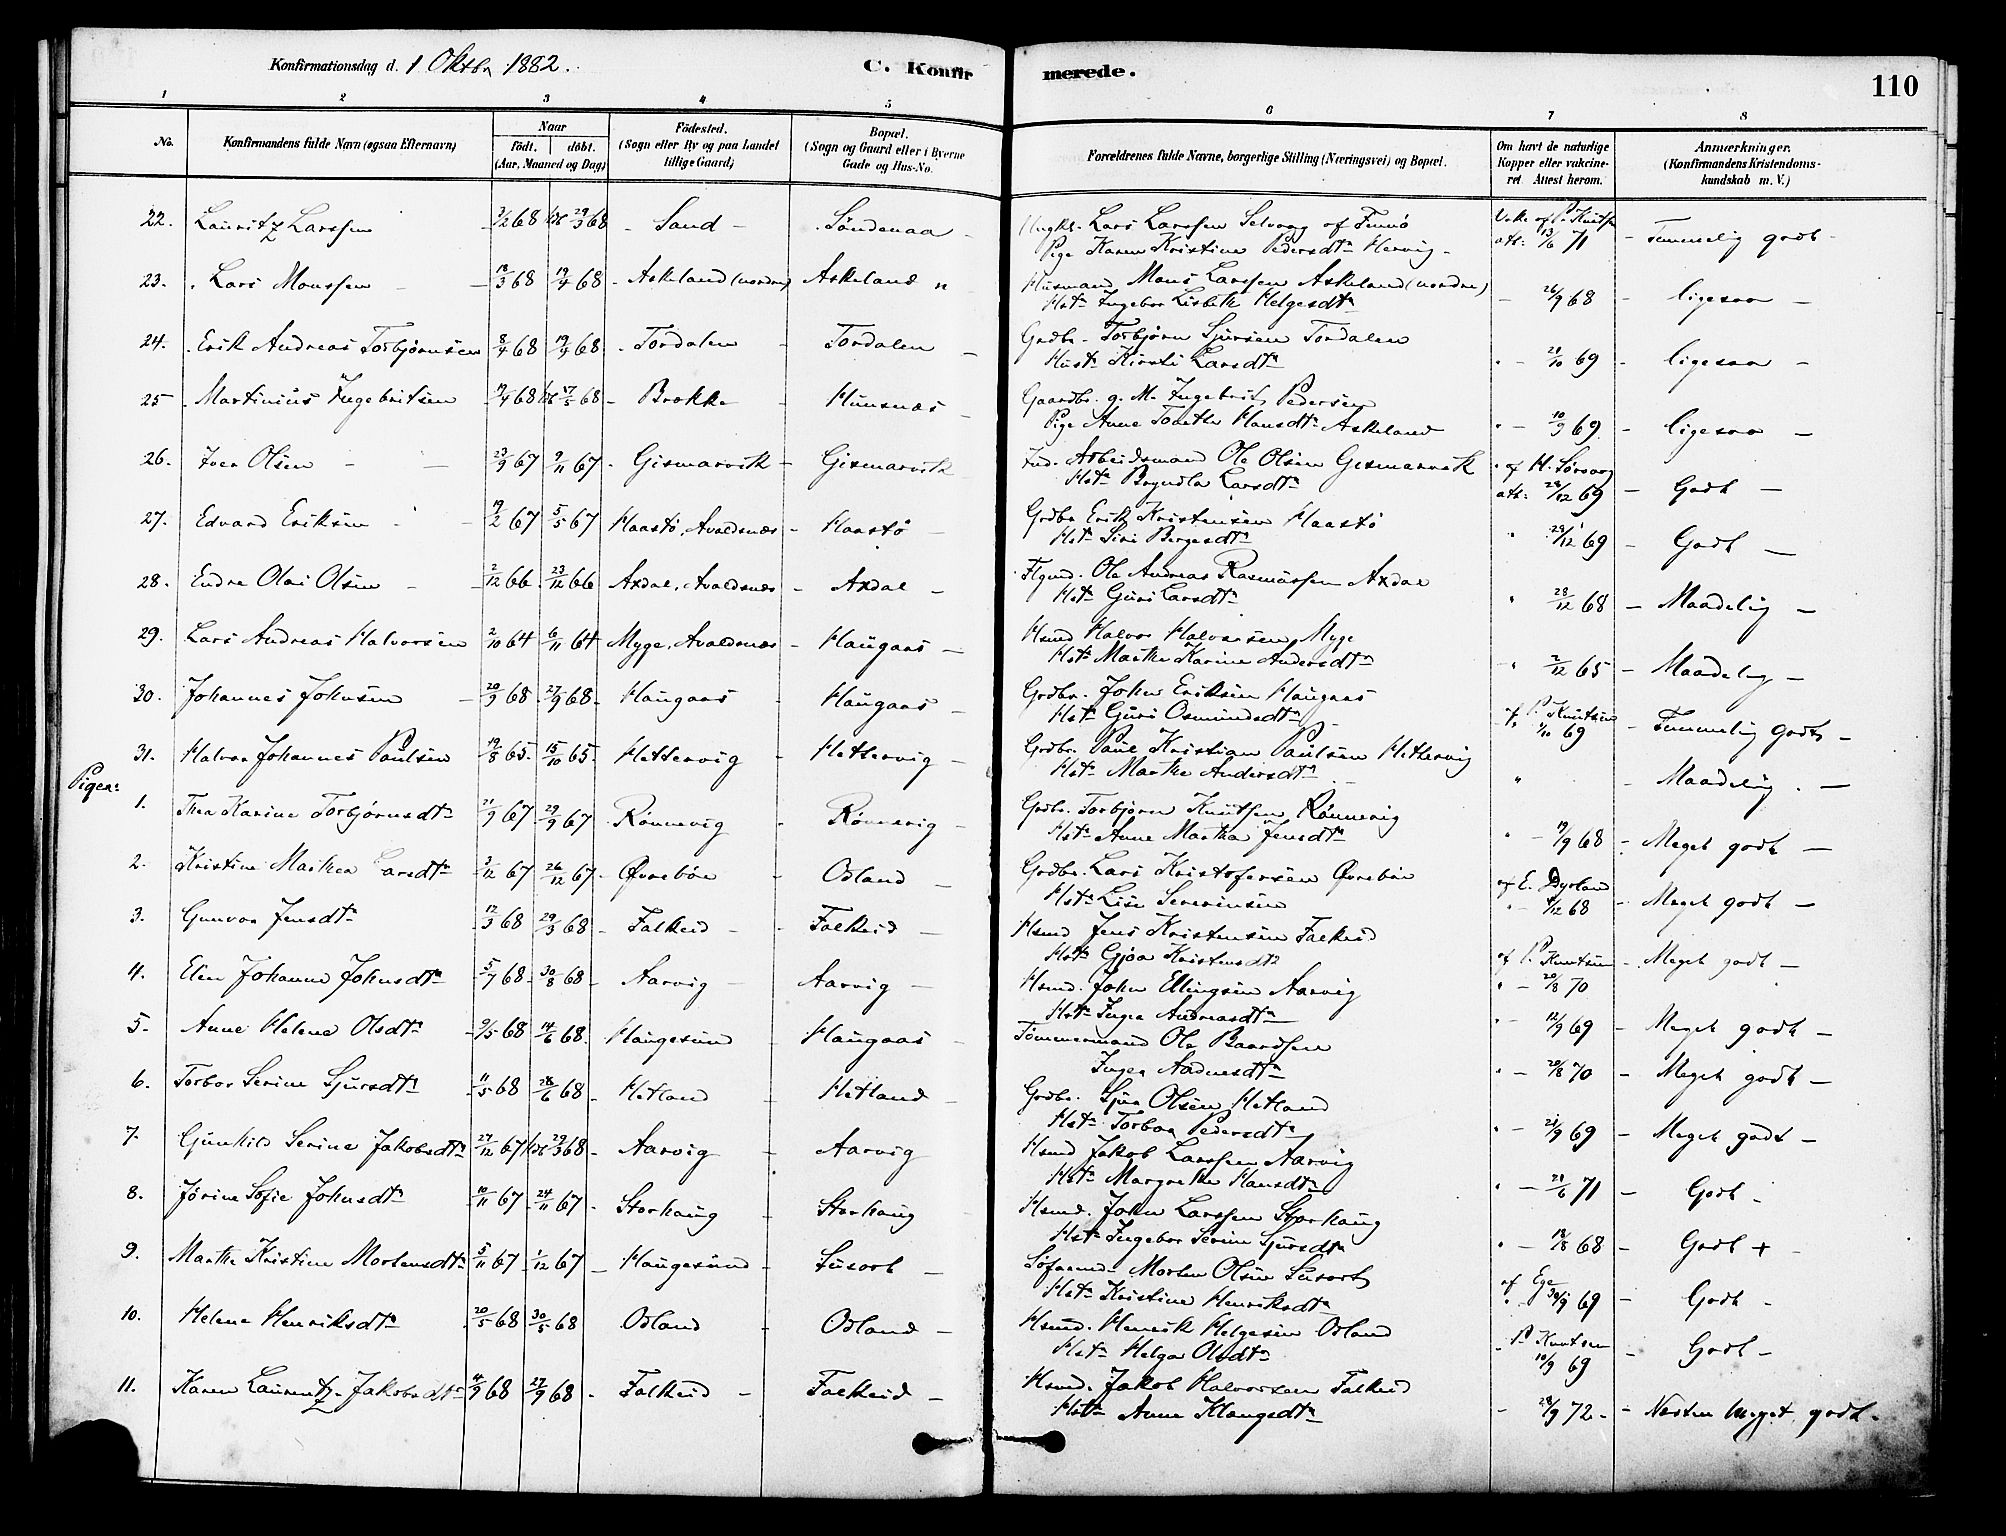 Konfirmationsdag d. 1 Oktbr 1882.
C. Konfirmerede.
110
1 2 3 4 5 6 7 8
No.
Konfirmandens fulde Navn (ogsaa Efternavn)
Naar
født. døbt.
(Aar, Maaned og Dag)
Fødested.
(Sogn eller By og paa Landet
tillige Gaard)
Bopæl.
(Sogn og Gaard eller i Byerne
Gade og Hus-No.
Forældrenes fulde Navne, borgerlige Stilling (Næringsvei) og Bopæl.
Om havt de naturlige
Kopper eller vakcine-
ret. Attest herom.
Anmærkninger.
(Konfirmandens Kristendoms-
kundskab m. V.)
22. Lauritz Larssen 68 29/3 68 - Sand - Søndenaa - Ungkl. Lars Larssen Selvaag af Finnø P. Knutsen
Pige Karen Kristine Pedersdtr Hervig - att: 13/6 71 - Temmelig godt -
23. Lars Monssen 18/3 68 19/4 68 - Askeland (nordre) Askeland n Husmand Mons Larssen Askeland (nordre)
Hst. Ingebor Lisbeth Helgesdtr - 26/9 68 - ligesaa -
24. Erik Andreas Torbjørnsen 8/4 68 19/4 68 - Tordalen - Tordalen - Grdbr. Torbjørn Sjursen Tordalen
Hust. Kirsti Larsdtr - 21/10 69 - ligesaa -
25 Martinius Ingebritsen 68 17/5 68 - Brække - Hunsnæs - Gaardbr. g. M. Ingebrit Pedersen
Pige Anne Hansdtr Askeland - 10/9 69 - ligesaa -
26. Iver Olsen 23/9 67 9/11 67 - Gismarvik - Gismarvik Ind. Arbeidsmand Ole Olsen Gismarvik af H. Sørvaag
Hst. Larsdtr att: 28/12 69 - Godt -
27. Edvard Eriksen 19/2 67 5/5 67 Haastø, Avaldsnæs - Haastø - Grdbr Erik Kristensen Haastø
Hst. Siri Bergesdtr 29/12 69 - Godt -
28. Endre Olai Olsen 2/12 66 23/12 66 Axdal, Avaldsnæs - Axdal - Ole Andreas Rasmussen Axdal
Hst. Guri Larsdtr 28/12 68 - Maadelig -
29. Lars Andreas Halvorsen 2/10 64 6/11 64 Myge, Avaldsnæs - Haugaas - Hsmd Halvor Halvorsen Myge
Hst. Marthe Karine Andersdtr 2/12 65 - Maadelig -
30. Johannes Johnsen 20/9 68 27/9 68 - Haugaas - Haugaas - Grdbr. John Eriksen Haugaas
Hst. Guri Osmundsdtr af P. Knutsen 1/10 69 - Temmelig godt -
31. Halvor Johannes Paulsen 19/8 65 15/10 65 - Hettervig - Hettervig - Grdbr. Paul Kristian Paulsen Hettervig
Hst. Marthe Andersdtr - Maadelig -
Piger:
1. Thea Karine Torbjørnsdtr 21/9 67 29/9 67 - Rønnevig - Rønnevig - Grdbr. Torbjørn Knutsen Rønnevig
Hst. Anne Martha Jensdtr - 19/9 68 - Meget godt -
2. Kristine Marthea Larsdtr 3/12 67 26/12 67 - Øvrebøe - Odland - Grdbr. Lars Kristofersen Øvrebøe
Hst. Lise Severinsen af E. Dyrland /12 68 - Meget godt -
3. Gunvor Jensdtr 17/3 68 29/3 68 - Falkeid - Falkeid - Hsmd Jens Kristensen Falkeid
Hst. Gjøa Kristensdtr af P. Knutsen - Meget godt -
4. Elen Johanne Johnsdtr 5/7 68 30/8 68 - Aarvig - Aarvig - Hsmd. John Ellingsen Aarvig 20/8 70
Hst. Inger Andreasdtr
5. Anne Helene Olsdtr 9/5 68 14/6 68 Haugesund - Haugaas - Tømmermand Ole Baardsen 12/9 69 - Meget godt -
Inger Aadnesdtr
6. Torbor Serine Sjursdtr 11/5 68 28/6 68 - Hetland - Hetland - Grdbr. Sjur Olsen Hetland 20/8 70 - Meget godt -
Hst. Torbor Pedersdtr
7. Gunhild Serine Jakobsdtr 27/12 67 29/3 68 - Aarvig - Aarvig Hsmd Jakob Larssen Aarvig 21/9 69 - Meget godt -
Hst. Margrethe Hansdtr
8. Jørine Sofie Johnsdtr 10/11 67 24/11 67 - Storhaug - Storhaug Hsmd. John Larssen Storhaug 21/6 71 - Godt -
Hst. Ingebor Serine Sjursdtr
9. Marthe Kristine Mortensdtr 5/11 67 1/12 67 - Haugesund - Susort - Søfarende Morten Olsen Susort 18/8 68 - Godt +
Hst. Kristine Henriksdtr
10. Helene Henriksdtr 20/5 68 30/5 68 Odland - Odland - Hsmd. Henrik Helgesen Odland af Ege 69 - Godt -
Hst. Helga Olsdtr P. Knutsen 10/9 69 - Godt -
11. Karen Laurentz. Jakobsdtr /9 68 27/9 68 - Falkeid - Falkeid - Hsmd. Jakob Halvorsen Falkeid
Hst. Anne Klangsdtr - 28/9 72 - Næsten Meget godt -